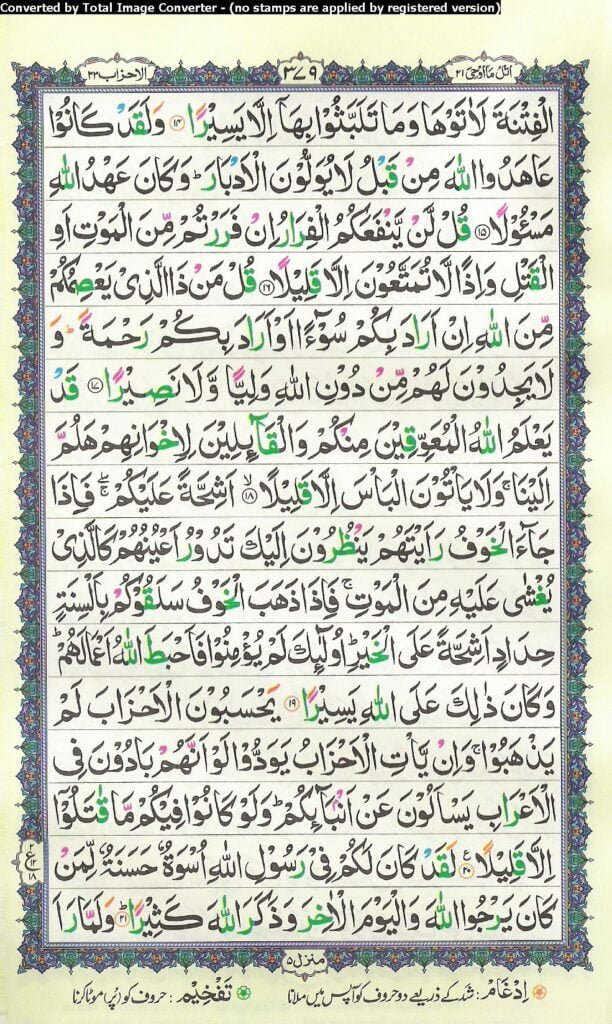 Converted by Total Image Converter - (no stamps are applied by registered version)
اتل ما اوحی ۲۱
۳۷۹
الاحزاب ۳۳
الْفِتْنَةَ لَاٰتَوْهَا وَمَا تَلَبَّثُوْا بِهَاۤ اِلَّا يَسِيْرًا ۝۱۴ وَلَقَدْ كَانُوْا
عَاهَدُوا اللّٰهَ مِنْ قَبْلُ لَا يُوَلُّوْنَ الْاَدْبَارَ ؕ وَكَانَ عَهْدُ اللّٰهِ
مَسْـُٔوْلًا ۝۱۵ قُلْ لَّنْ يَّنْفَعَكُمُ الْفِرَارُ اِنْ فَرَرْتُمْ مِّنَ الْمَوْتِ اَوِ
الْقَتْلِ وَاِذًا لَّا تُمَتَّعُوْنَ اِلَّا قَلِيْلًا ۝۱۶ قُلْ مَنْ ذَا الَّذِيْ يَعْصِمُكُمْ
مِّنَ اللّٰهِ اِنْ اَرَادَ بِكُمْ سُوْٓءًا اَوْ اَرَادَ بِكُمْ رَحْمَةً ؕ وَ
لَا يَجِدُوْنَ لَهُمْ مِّنْ دُوْنِ اللّٰهِ وَلِيًّا وَّلَا نَصِيْرًا ۝۱۷ قَدْ
يَعْلَمُ اللّٰهُ الْمُعَوِّقِيْنَ مِنْكُمْ وَالْقَآىِٕلِيْنَ لِاِخْوَانِهِمْ هَلُمَّ
اِلَيْنَا ۚ وَلَا يَاْتُوْنَ الْبَاْسَ اِلَّا قَلِيْلًا ۝۱۸ۙ اَشِحَّةً عَلَيْكُمْ ۖۚ فَاِذَا
جَآءَ الْخَوْفُ رَاَيْتَهُمْ يَنْظُرُوْنَ اِلَيْكَ تَدُوْرُ اَعْيُنُهُمْ كَالَّذِيْ
يُغْشٰى عَلَيْهِ مِنَ الْمَوْتِ ۚ فَاِذَا ذَهَبَ الْخَوْفُ سَلَقُوْكُمْ بِاَلْسِنَةٍ
حِدَادٍ اَشِحَّةً عَلَى الْخَيْرِ ؕ اُولٰٓىِٕكَ لَمْ يُؤْمِنُوْا فَاَحْبَطَ اللّٰهُ اَعْمَالَهُمْ ؕ
وَكَانَ ذٰلِكَ عَلَى اللّٰهِ يَسِيْرًا ۝۱۹ يَحْسَبُوْنَ الْاَحْزَابَ لَمْ
يَذْهَبُوْا ۚ وَاِنْ يَّاْتِ الْاَحْزَابُ يَوَدُّوْا لَوْ اَنَّهُمْ بَادُوْنَ فِي
الْاَعْرَابِ يَسْاَلُوْنَ عَنْ اَنْۢبَآىِٕكُمْ ؕ وَلَوْ كَانُوْا فِيْكُمْ مَّا قٰتَلُوْۤا
اِلَّا قَلِيْلًا ۝۲۰ ع لَقَدْ كَانَ لَكُمْ فِيْ رَسُوْلِ اللّٰهِ اُسْوَةٌ حَسَنَةٌ لِّمَنْ
كَانَ يَرْجُوا اللّٰهَ وَالْيَوْمَ الْاٰخِرَ وَذَكَرَ اللّٰهَ كَثِيْرًا ۝۲۱ؕ وَلَمَّا رَاَ
ع ۲ ۱۲ ۱۸
منزل ۵
اِدغَام : شد کے ذریعے دو حروف کو آپس میں ملانا تَفخِیم : حروف کو (پُر) موٹا کرنا